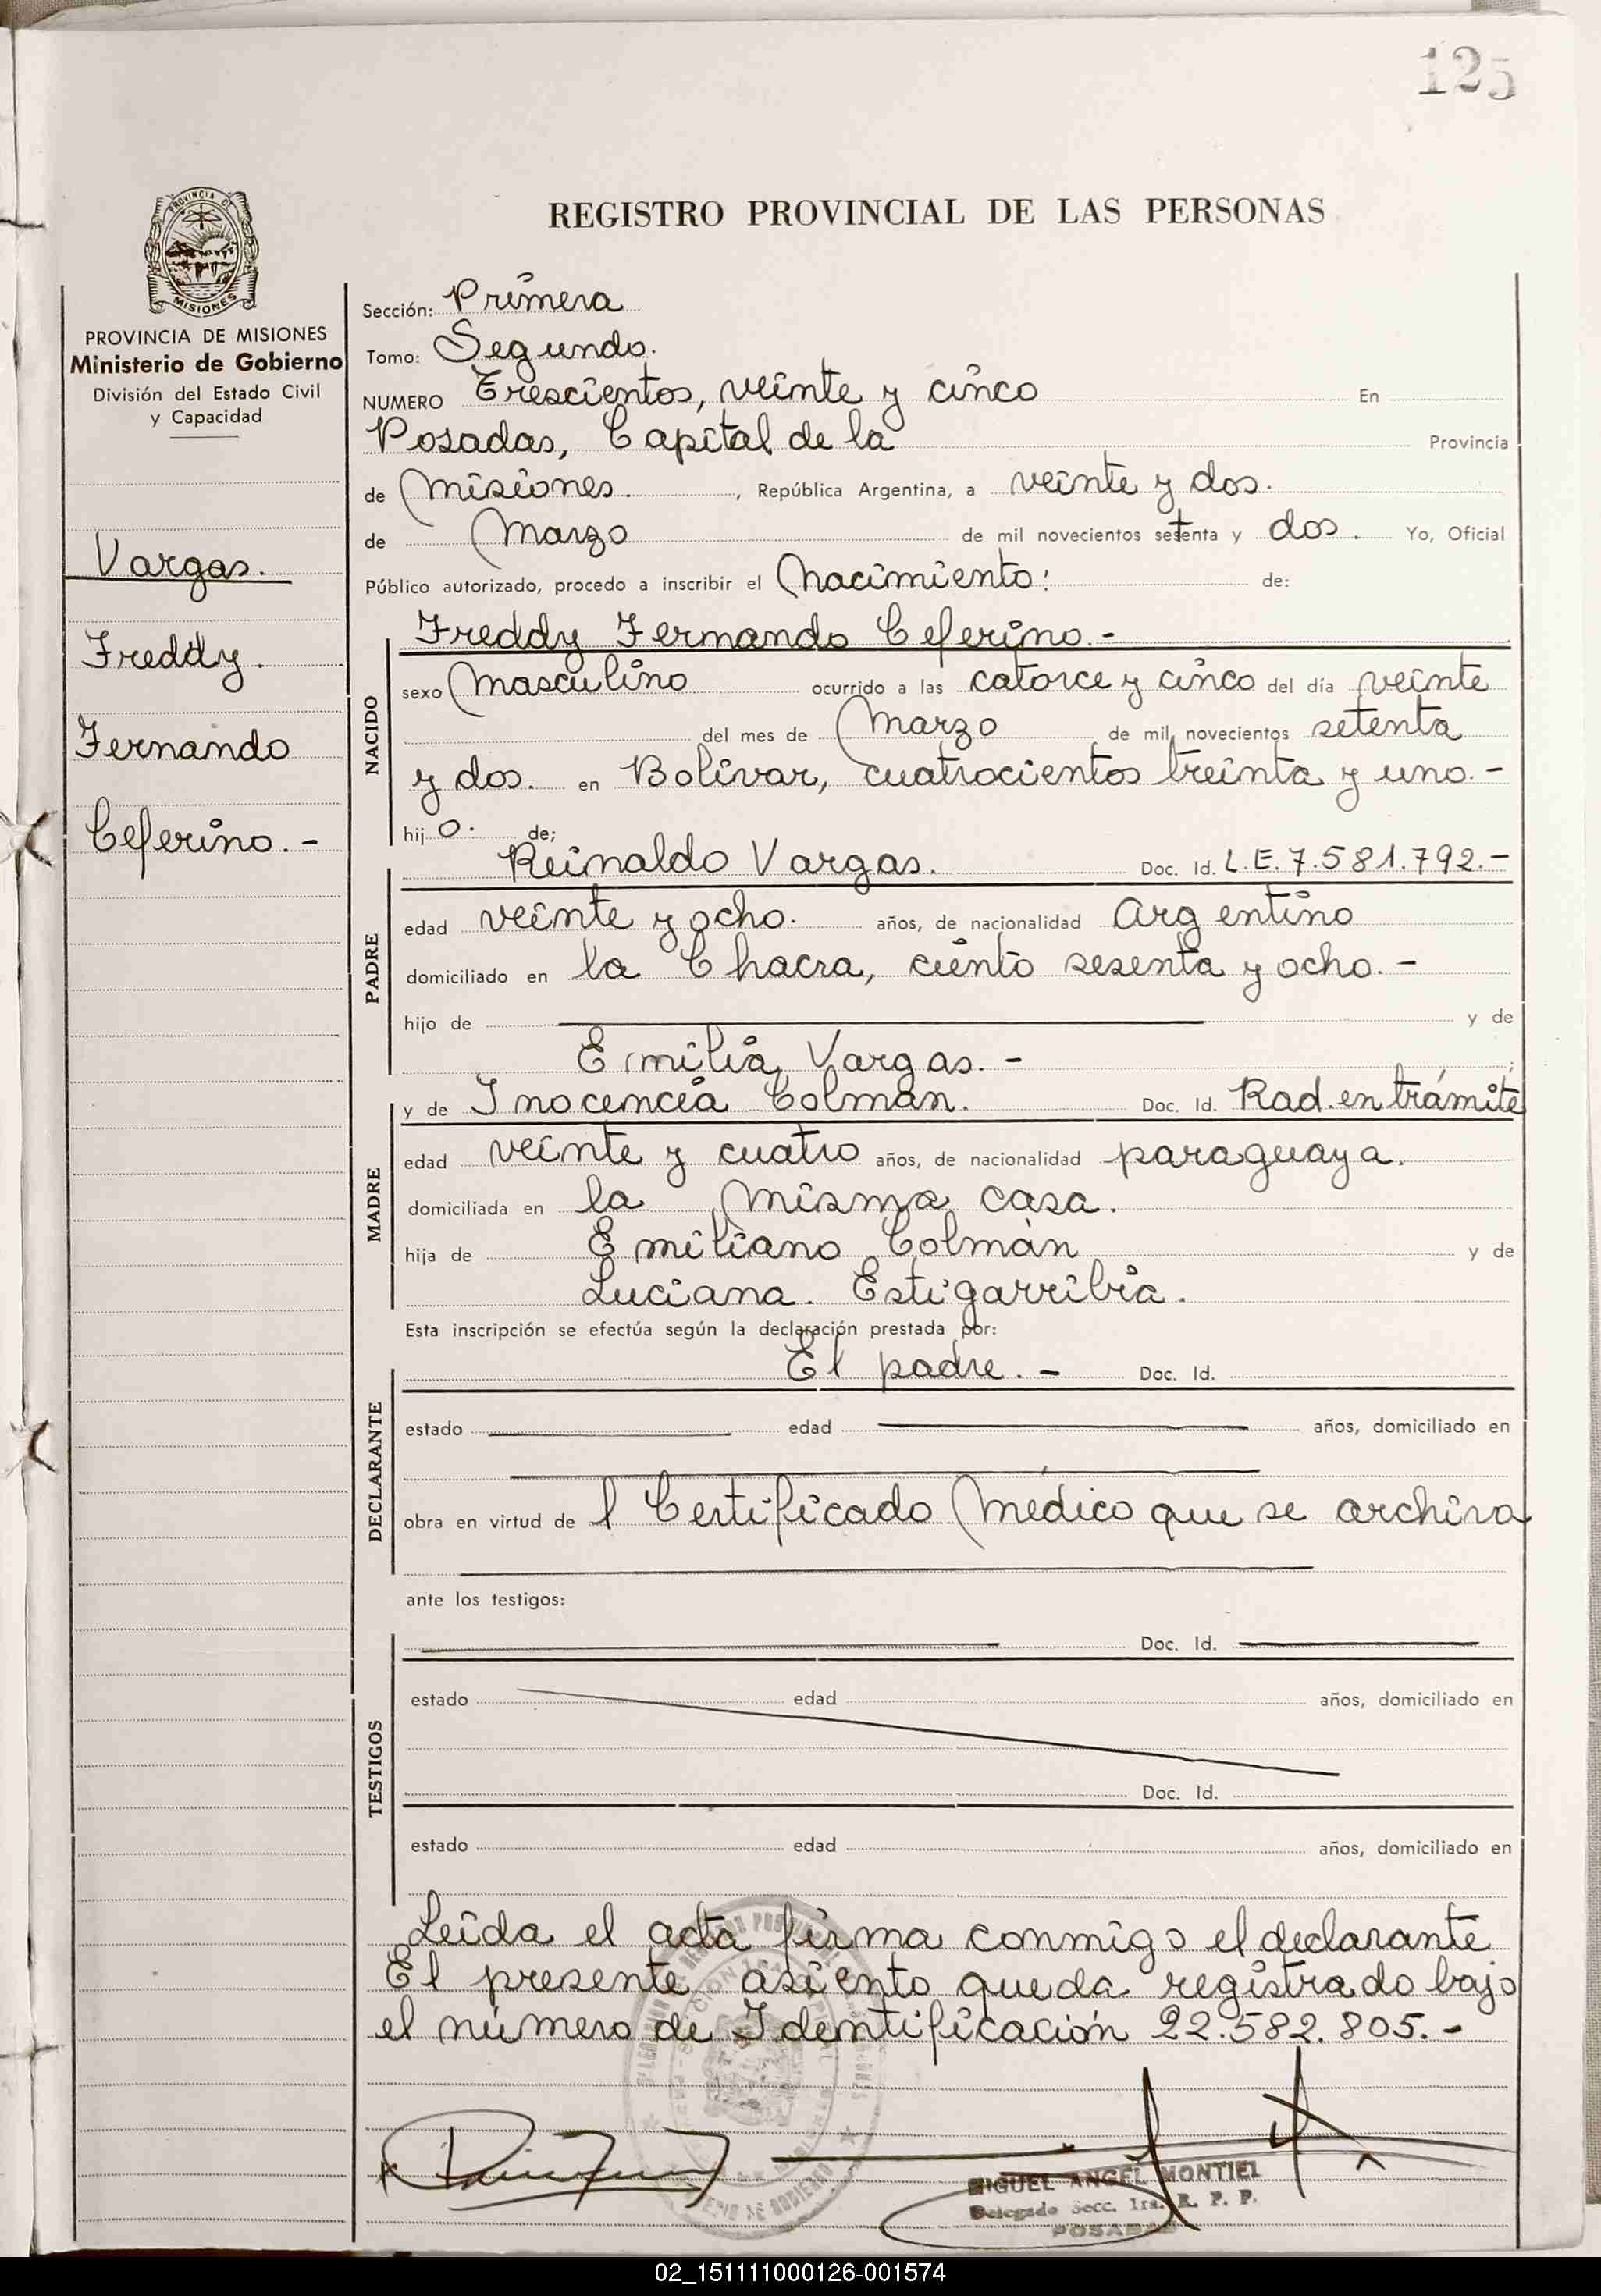 125
PROVINCIA DE
MISIONES
REGISTRO PROVINCIAL DE LAS PERSONAS
PROVINCIA DE MISIONES
Ministerio de Gobierno
División del Estado Civil
y Capacidad
Vargas.
Freddy.
Fernando
Ceferino.-
Sección: Primera
Tomo: Segundo.
NUMERO Trescientos, veinte y cinco En
Posadas, Capital de la Provincia
de Misiones. , República Argentina, a veinte y dos.
de Marzo de mil novecientos setenta y dos. Yo, Oficial
Público autorizado, procedo a inscribir el Nacimiento: de:
NACIDO
Freddy Fernando Ceferino.-
sexo Masculino ocurrido a las catorce y cinco del día veinte
del mes de Marzo de mil novecientos setenta
y dos. en Bolívar, cuatrocientos treinta y uno.-
hij o. de;
PADRE
Reinaldo Vargas. Doc. Id. L.E. 7.581.792.-
edad veinte y ocho. años, de nacionalidad Argentino
domiciliado en la Chacra, ciento sesenta y ocho.-
hijo de y de
Emilia Vargas.-
MADRE
y de Inocencia Colmán. Doc. Id. Rad. en trámite
edad veinte y cuatro años, de nacionalidad paraguaya.
domiciliada en la misma casa.
hija de Emiliano Colmán y de
Luciana. Estigarribia.
Esta inscripción se efectúa según la declaración prestada por:
DECLARANTE
El padre.- Doc. Id.
estado edad años, domiciliado en
obra en virtud de l Certificado Médico que se archiva
ante los testigos:
TESTIGOS
Doc. Id.
estado edad años, domiciliado en
Doc. Id.
estado edad años, domiciliado en
Leída el acta firma conmigo el declarante
El presente asiento queda registrado bajo
el número de Identificación 22.582.805.-
MIGUEL ANGEL MONTIEL
Delegado Secc. 1ra. R. P. P.
POSADAS
02_151111000126-001574